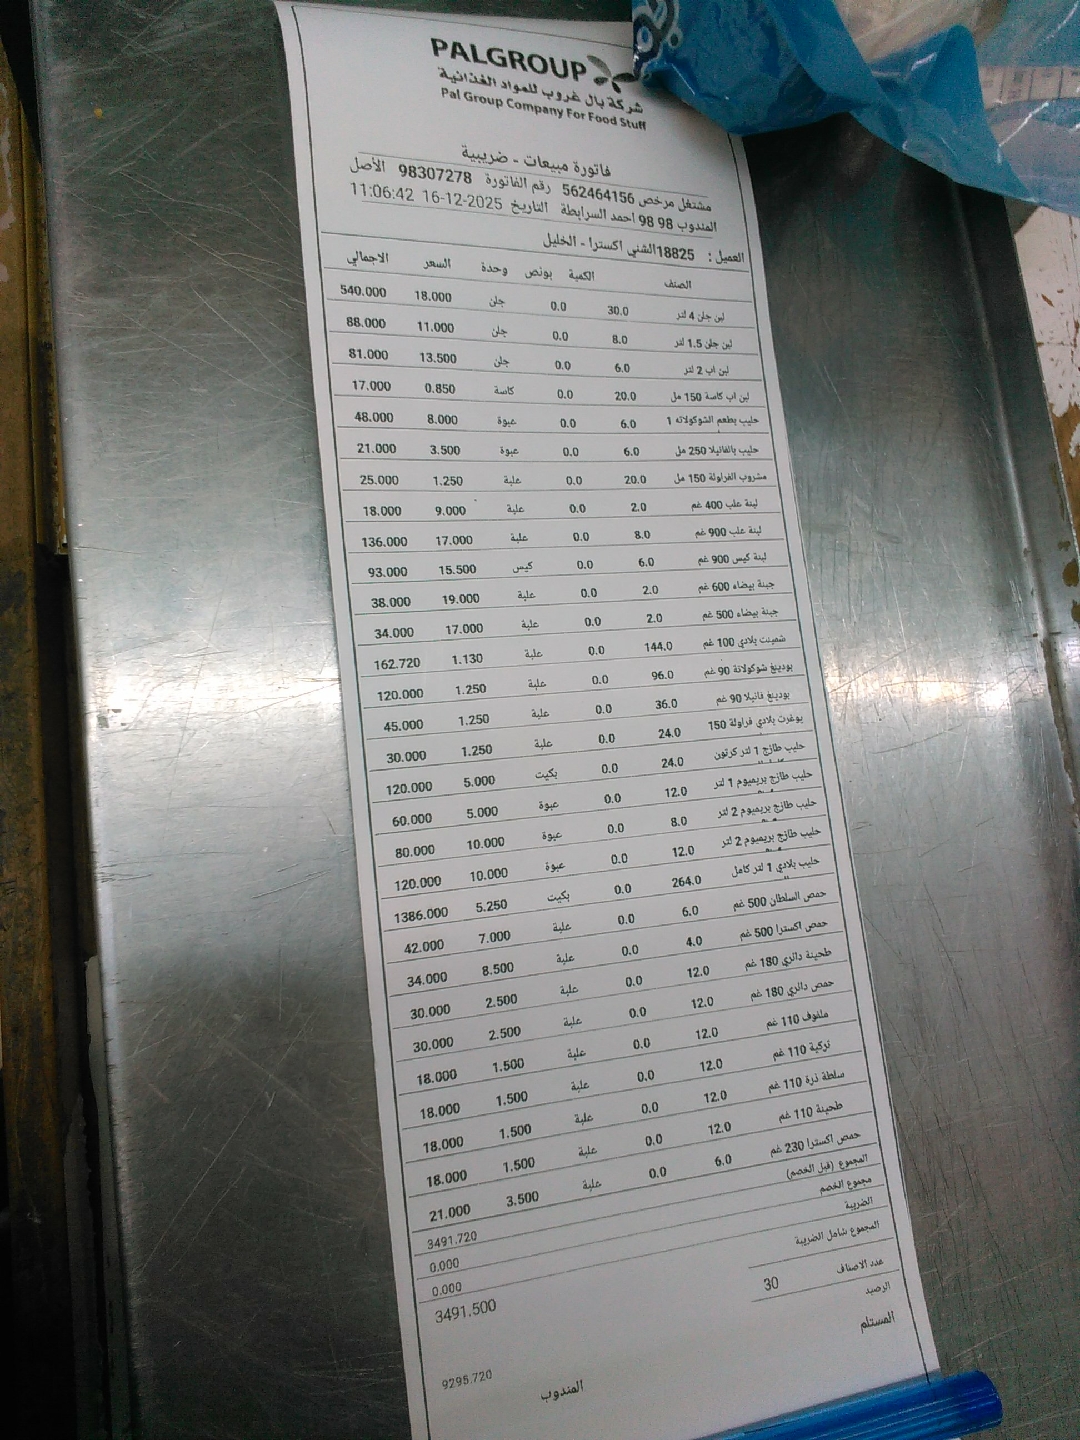 PALGROUP
شركة بال غروب للمواد الغذائية
Pal Group Company For Food Stuff
فاتورة مبيعات - ضريبية
مشتغل مرخص 562464156 رقم الفاتورة 98307278 الأصل
المندوب 98 98 احمد السرابطة التاريخ 16-12-2025 11:06:42
العميل : 18825الشني اكسترا - الخليل
الصنف الكمية بونص وحدة السعر الاجمالي
لبن جلن 4 لتر 30.0 0.0 جلن 18.000 540.000
لبن جلن 1.5 لتر 8.0 0.0 جلن 11.000 88.000
لبن اب 2 لتر 6.0 0.0 جلن 13.500 81.000
لبن اب كاسة 150 مل 20.0 0.0 كاسة 0.850 17.000
حليب بطعم الشوكولاته 1 6.0 0.0 عبوة 8.000 48.000
حليب بالفانيلا 250 مل 6.0 0.0 عبوة 3.500 21.000
مشروب الفراولة 150 مل 20.0 0.0 علبة 1.250 25.000
لبنة علب 400 غم 2.0 0.0 علبة 9.000 18.000
لبنة علب 900 غم 8.0 0.0 علبة 17.000 136.000
لبنة كيس 900 غم 6.0 0.0 كيس 15.500 93.000
جبنة بيضاء 600 غم 2.0 0.0 علبة 19.000 38.000
جبنة بيضاء 500 غم 2.0 0.0 علبة 17.000 34.000
شمينت بلادي 100 غم 144.0 0.0 علبة 1.130 162.720
بودينغ شوكولاتة 90 غم 96.0 0.0 علبة 1.250 120.000
بودينغ فانيلا 90 غم 36.0 0.0 علبة 1.250 45.000
يوغرت بلادي فراولة 150 24.0 0.0 علبة 1.250 30.000
حليب طازج 1 لتر كرتون 24.0 0.0 بكيت 5.000 120.000
حليب طازج بريميوم 1 لتر 12.0 0.0 عبوة 5.000 60.000
حليب طازج بريميوم 2 لتر 8.0 0.0 عبوة 10.000 80.000
حليب طازج بريميوم 2 لتر 12.0 0.0 عبوة 10.000 120.000
حليب بلادي 1 لتر كامل 264.0 0.0 بكيت 5.250 1386.000
حمص السلطان 500 غم 6.0 0.0 علبة 7.000 42.000
حمص اكسترا 500 غم 4.0 0.0 علبة 8.500 34.000
طحينة دائري 180 غم 12.0 0.0 علبة 2.500 30.000
حمص دائري 180 غم 12.0 0.0 علبة 2.500 30.000
ملفوف 110 غم 12.0 0.0 علبة 1.500 18.000
تركية 110 غم 12.0 0.0 علبة 1.500 18.000
سلطة ذرة 110 غم 12.0 0.0 علبة 1.500 18.000
طحينة 110 غم 12.0 0.0 علبة 1.500 18.000
حمص اكسترا 230 غم 6.0 0.0 علبة 3.500 21.000
المجموع (قبل الخصم) 3491.720
مجموع الخصم 0.000
الضريبة 0.000
المجموع شامل الضريبة 3491.500
عدد الاصناف 30
الرصيد 9295.720
المستلم المندوب